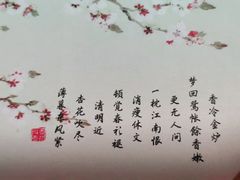 香冷金炉
梦回鸳帐馀香嫩
更无人问
一枕江南恨
消瘦休文
顿觉春衫褪
清明近
杏花吹尽
薄暮东风紧